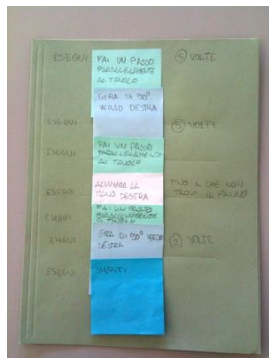 ESEGUI FAI UN PASSO PARALLELAMENTE AL TAVOLO 5 VOLTE
GIRA DI 90° VERSO DESTRA
ESEGUI 5 VOLTE
ESEGUI FAI UN PASSO PARALLELAMENTE AL TAVOLO
ESEGUI ALLUNGA LA MANO DESTRA FINO A CHE NON TROVI IL
ESEGUI FAI UN PASSO PARALLELAMENTE AL TAVOLO
ESEGUI GIRA DI 90° VERSO DESTRA 2 VOLTE
ESEGUI SIEDITI